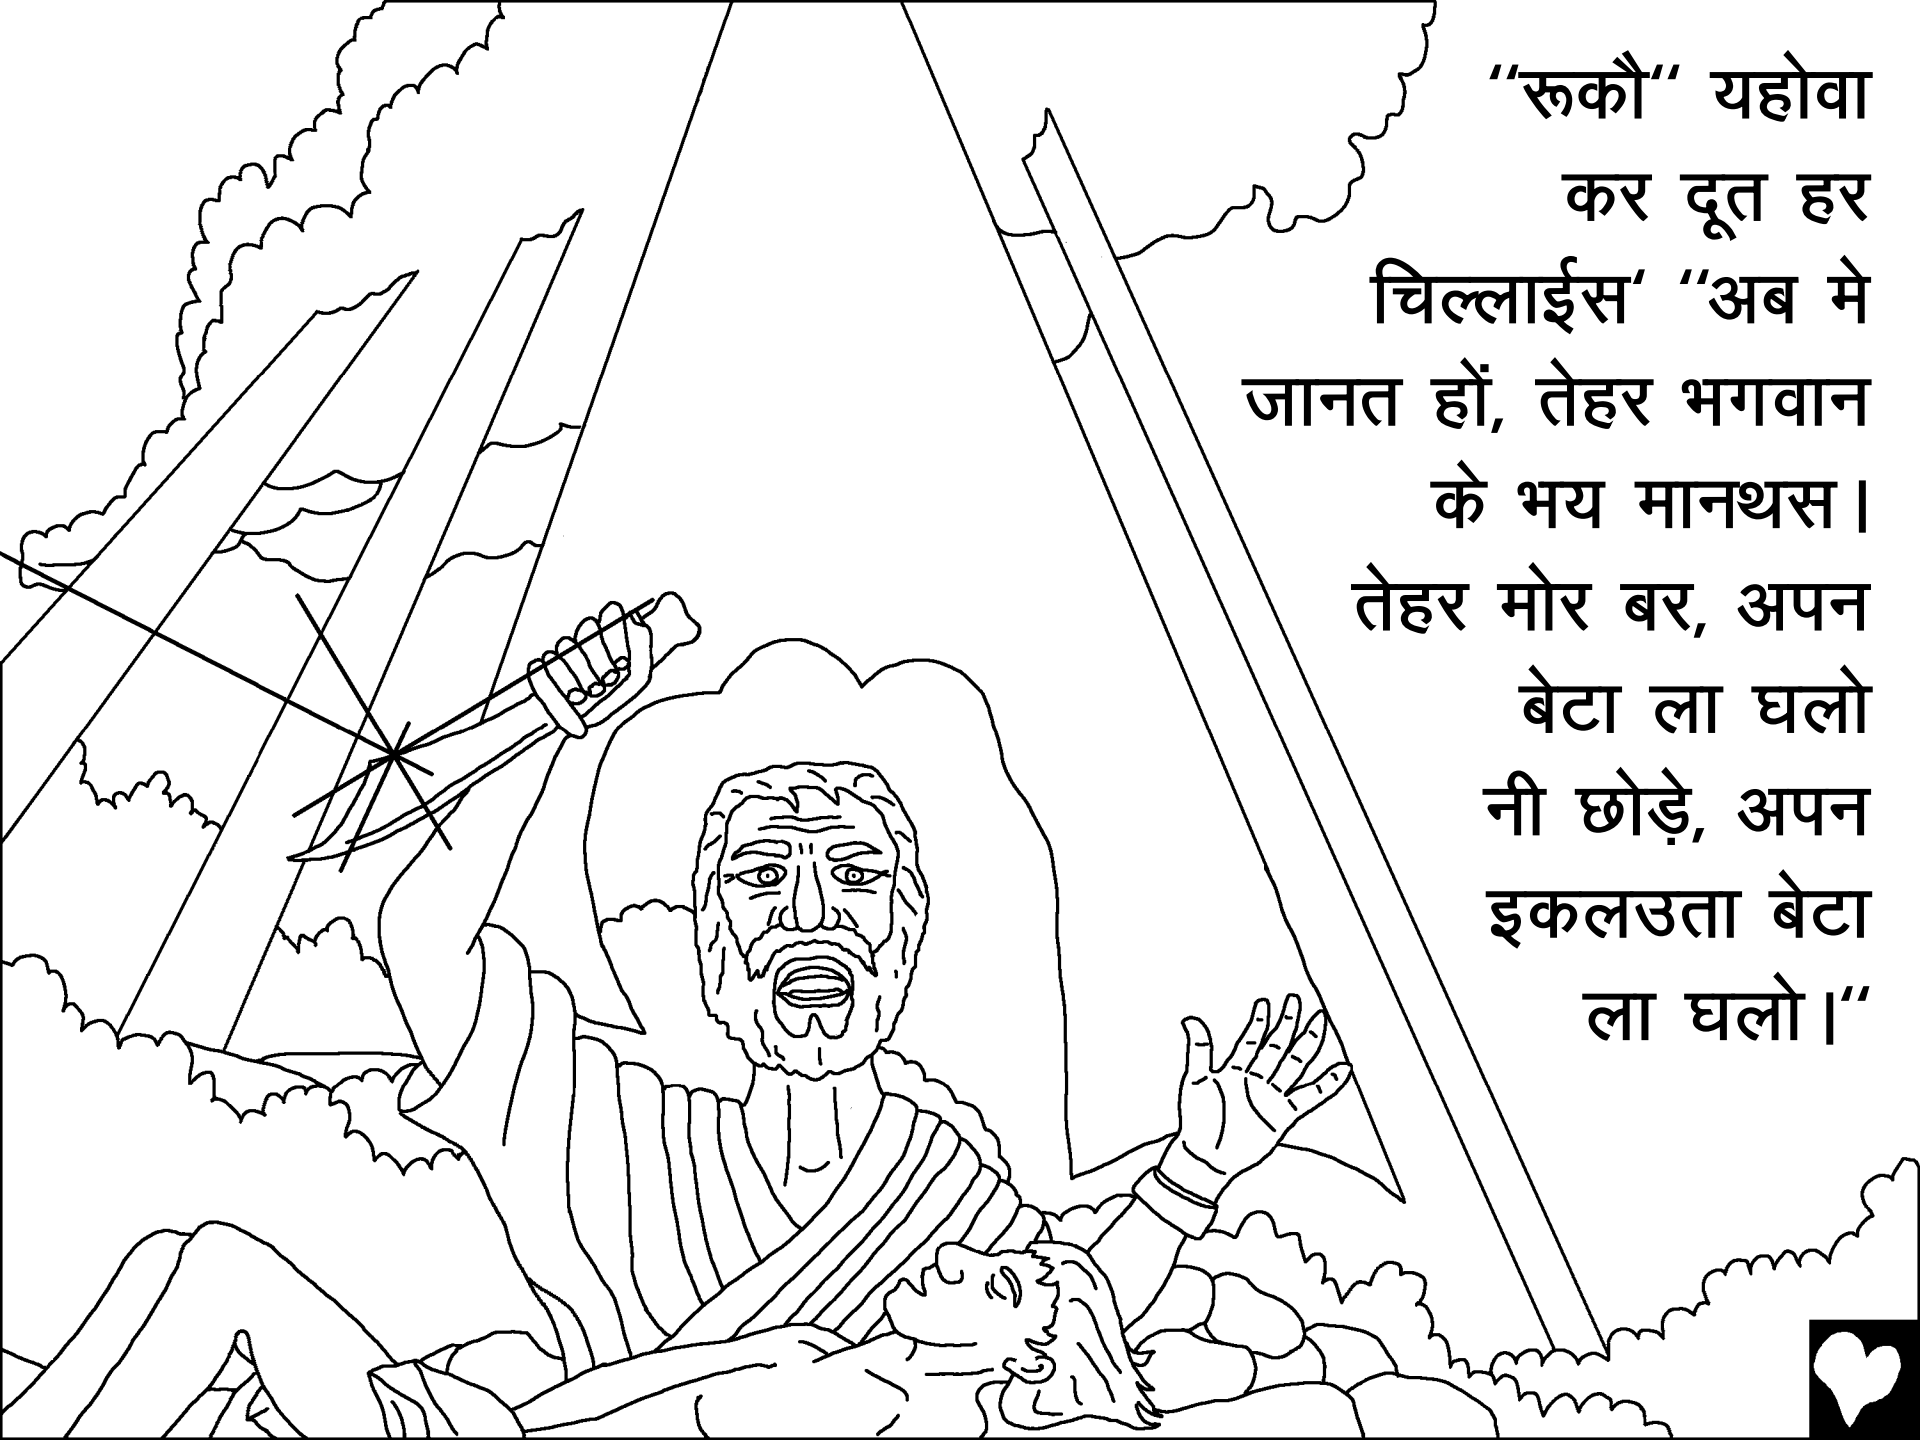 “रूकौ“ यहोवा
कर दूत हर
चिल्लाईस‘ “अब मे
जानत हों, तेहर भगवान
के भय मानथस।
तेहर मोर बर, अपन
बेटा ला घलो
नी छोड़े, अपन
इकलउता बेटा
ला घलो।“